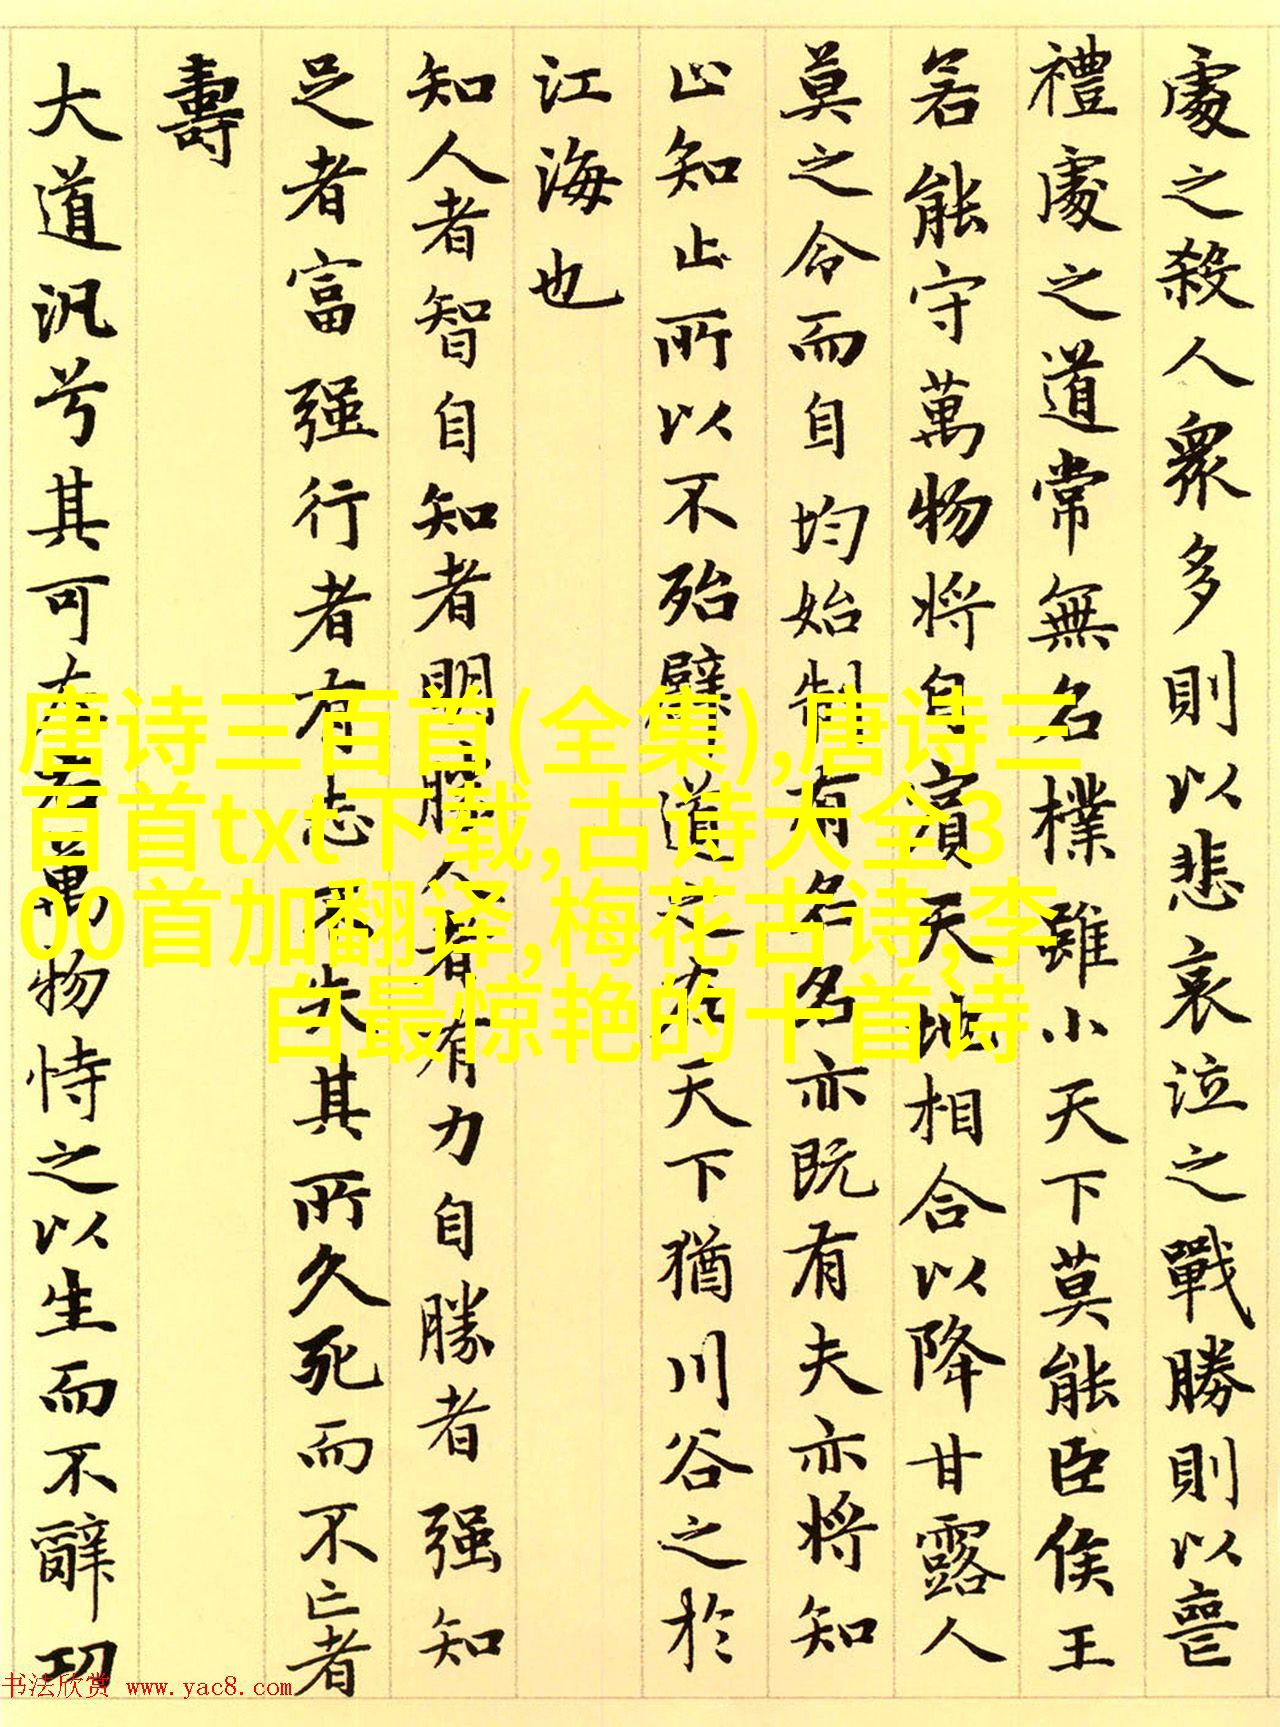 處之殺人衆多則以悲哀泣之戰勝則以喪
禮處之道常無名樸雖小天下莫能臣侯王
若能守萬物將自賓天地相合以降甘露人
莫之令而自均始制有名名亦既有夫亦將知
止知止所以不殆譬道之在天下猶川谷之於
江海也
知人者智自知者明勝人者有力自勝者强知
足者富强行者有志不失其所久死而不亡者
壽
大道汎兮其可左右萬物恃之以生而不辭功
唐诗三百首(全集),唐诗三
百首txt下载,古诗大全3
00首加翻译,梅花古诗,李
白最惊艳的十首诗
书法欣赏 www.yac8.com